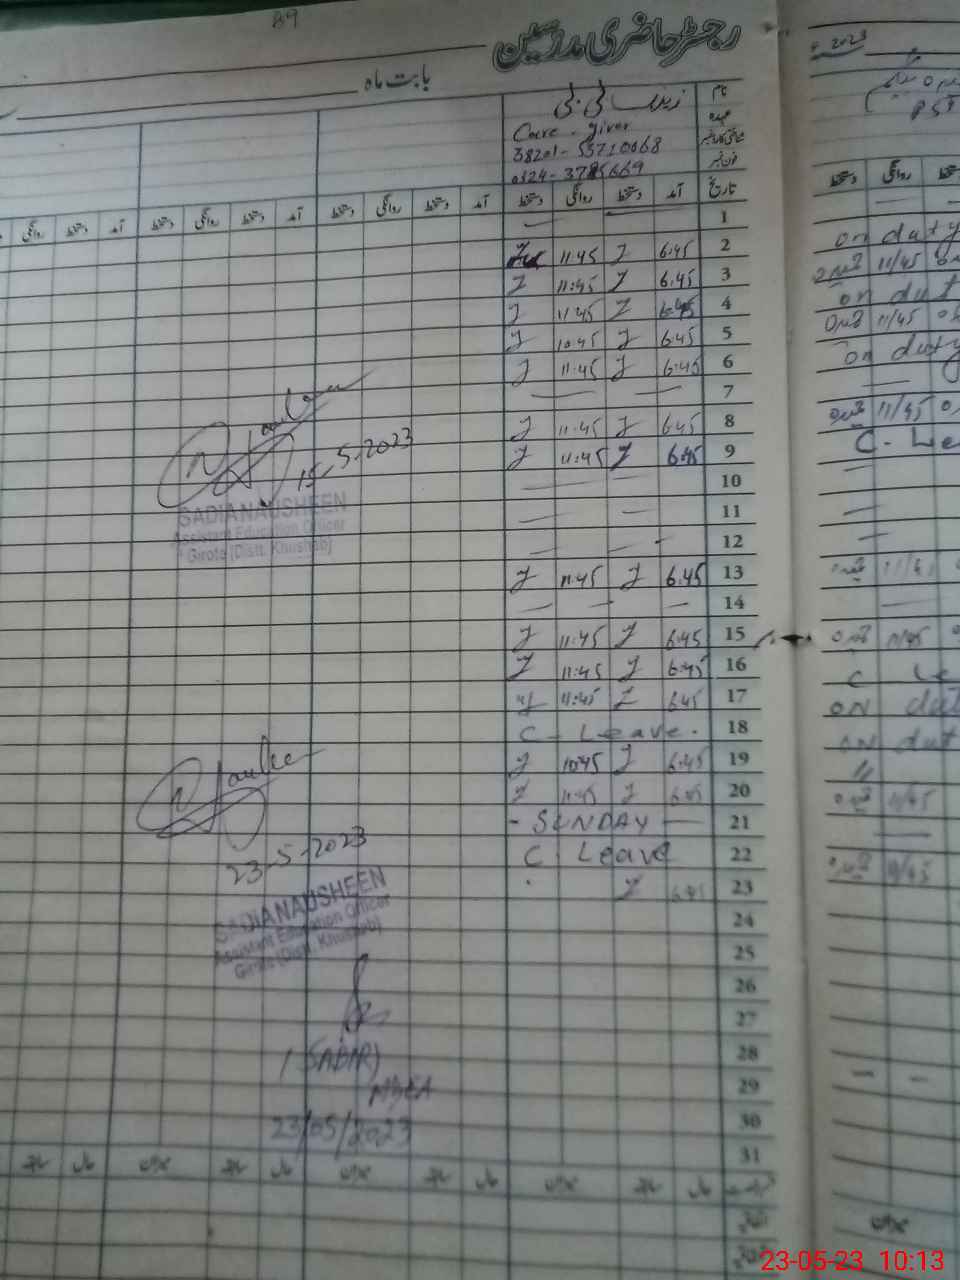 89
رجسٹر حاضری مدرسین
بابت ماہ
2023
نام
زینب بی بی
عہدہ
Care - giver
شناختی کارڈ نمبر
38201-
فون نمبر
PST
تاریخ آمد دستخط روانگی دستخط آمد دستخط روانگی دستخط آمد دستخط روانگی دستخط آمد دستخط روانگی
1 — —
2 6:45 Z 11:45
3 6:45 Z 11:45 Z
4 6:45 Z 11:45 Z
5 6:45 Z 10:45 Z
6 6:45 Z 11:45 Z
7 — —
8 6:45 Z 11:45 Z
9 6:45 Z 11:45 Z
10 — —
11 — —
12 — —
13 6:45 Z 11:45 Z
14 — — —
15 6:45 Z 11:45 Z
16 6:45 Z 11:45 Z
17 6:45 Z 11:45 Z
18 C - Leave.
19 6:45 Z 10:45 Z
20 6:45 Z 11:45 Z
21 - SUNDAY —
22 C . Leave
23 6:45 Z
24
25
26
27
28
29
30
31
on duty
11/45
on dut
11/45
on duty
11/45
C - Le
11/45
11/45
C Le
ON dut
ON dut
//
11/45
11/45
15-5-2023
SADIA NAUSHEEN
Assistant Education Officer
Girote (Distt. Khushab)
23-5-2023
SADIA NAUSHEEN
Assistant Education Officer
Girote (Distt. Khushab)
(SABIR)
MEA
23/05/2023
23-05-23 10:13